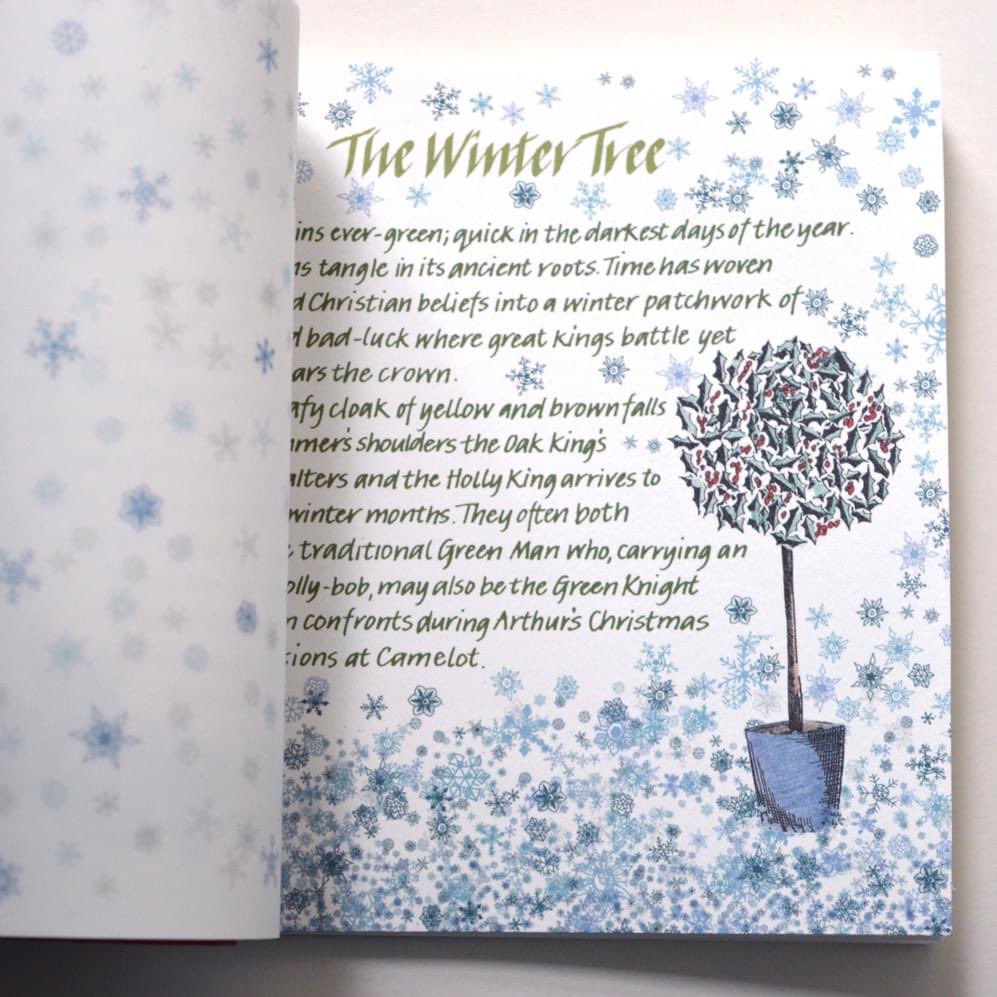 The Winter Tree
ins ever-green; quick in the darkest days of the year.
ns tangle in its ancient roots. Time has woven
d Christian beliefs into a winter patchwork of
d bad-luck where great kings battle yet
ars the crown.
afy cloak of yellow and brown falls
mmer's shoulders the Oak King's
alters and the Holly King arrives to
winter months. They often both
traditional Green Man who, carrying an
olly-bob, may also be the Green Knight
n confronts during Arthur's Christmas
tions at Camelot.